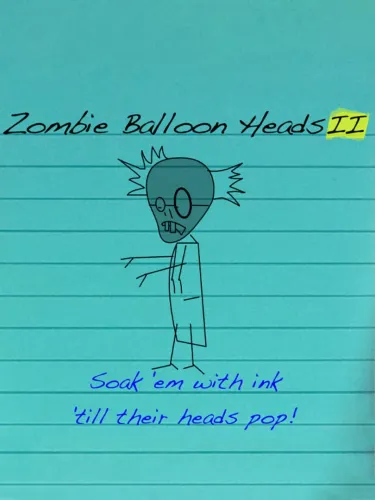 Zombie Balloon Heads II
Soak 'em with ink
'till their heads pop!